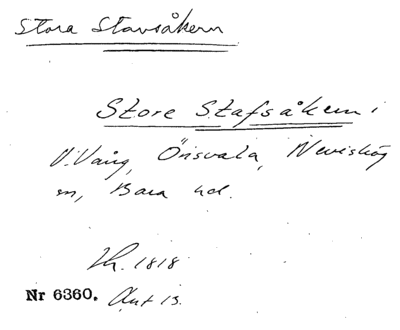 Stora Stavsåkern
Store Stafsåkern i
V. Vång, Örisvala, Nevishög
sn, Bara hd.
Lh. 1818
Nr 6360. Akt 13.